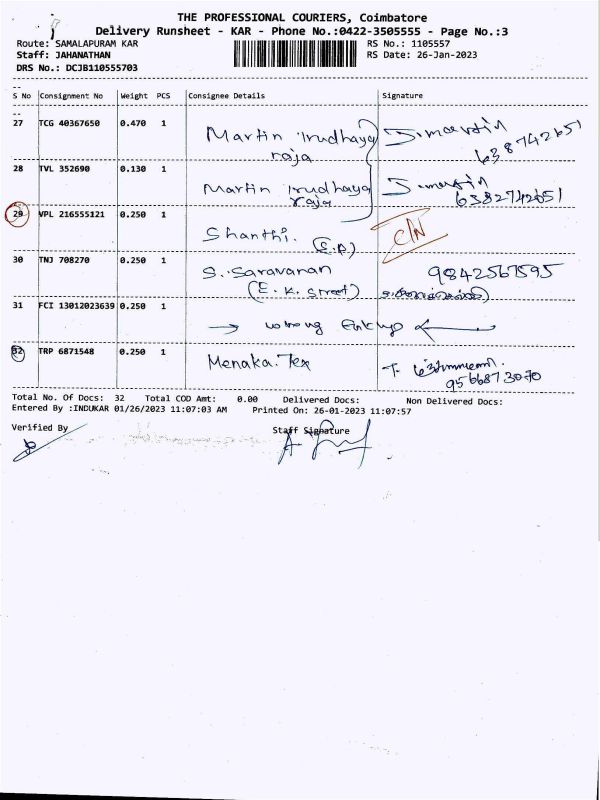 THE PROFESSIONAL COURIERS, Coimbatore
Delivery Runsheet - KAR - Phone No.:0422-3505555 - Page No.:3
Route: SAMALAPURAM KAR RS No.: 1105557
Staff: JAHANATHAN RS Date: 26-Jan-2023
DRS No.: DCJB110555703
S No Consignment No Weight PCS Consignee Details Signature
27 TCG 40367650 0.470 1 Martin Irudhaya raja J. martin
28 TVL 352690 0.130 1 Martin Irudhaya raja J. martin 6382742651
29 VPL 216555121 0.250 1 Shanthi. C/N
30 TNJ 708270 0.250 1 S. Saravanan (E. K. Street) 9842567595
31 FCI 13012023639 0.250 1 → wrong ←
32 TRP 6871548 0.250 1 Menaka. Tex 9566873070
Total No. Of Docs: 32 Total COD Amt: 0.00 Delivered Docs: Non Delivered Docs:
Entered By :INDUKAR 01/26/2023 11:07:03 AM Printed On: 26-01-2023 11:07:57
Verified By Staff Signature